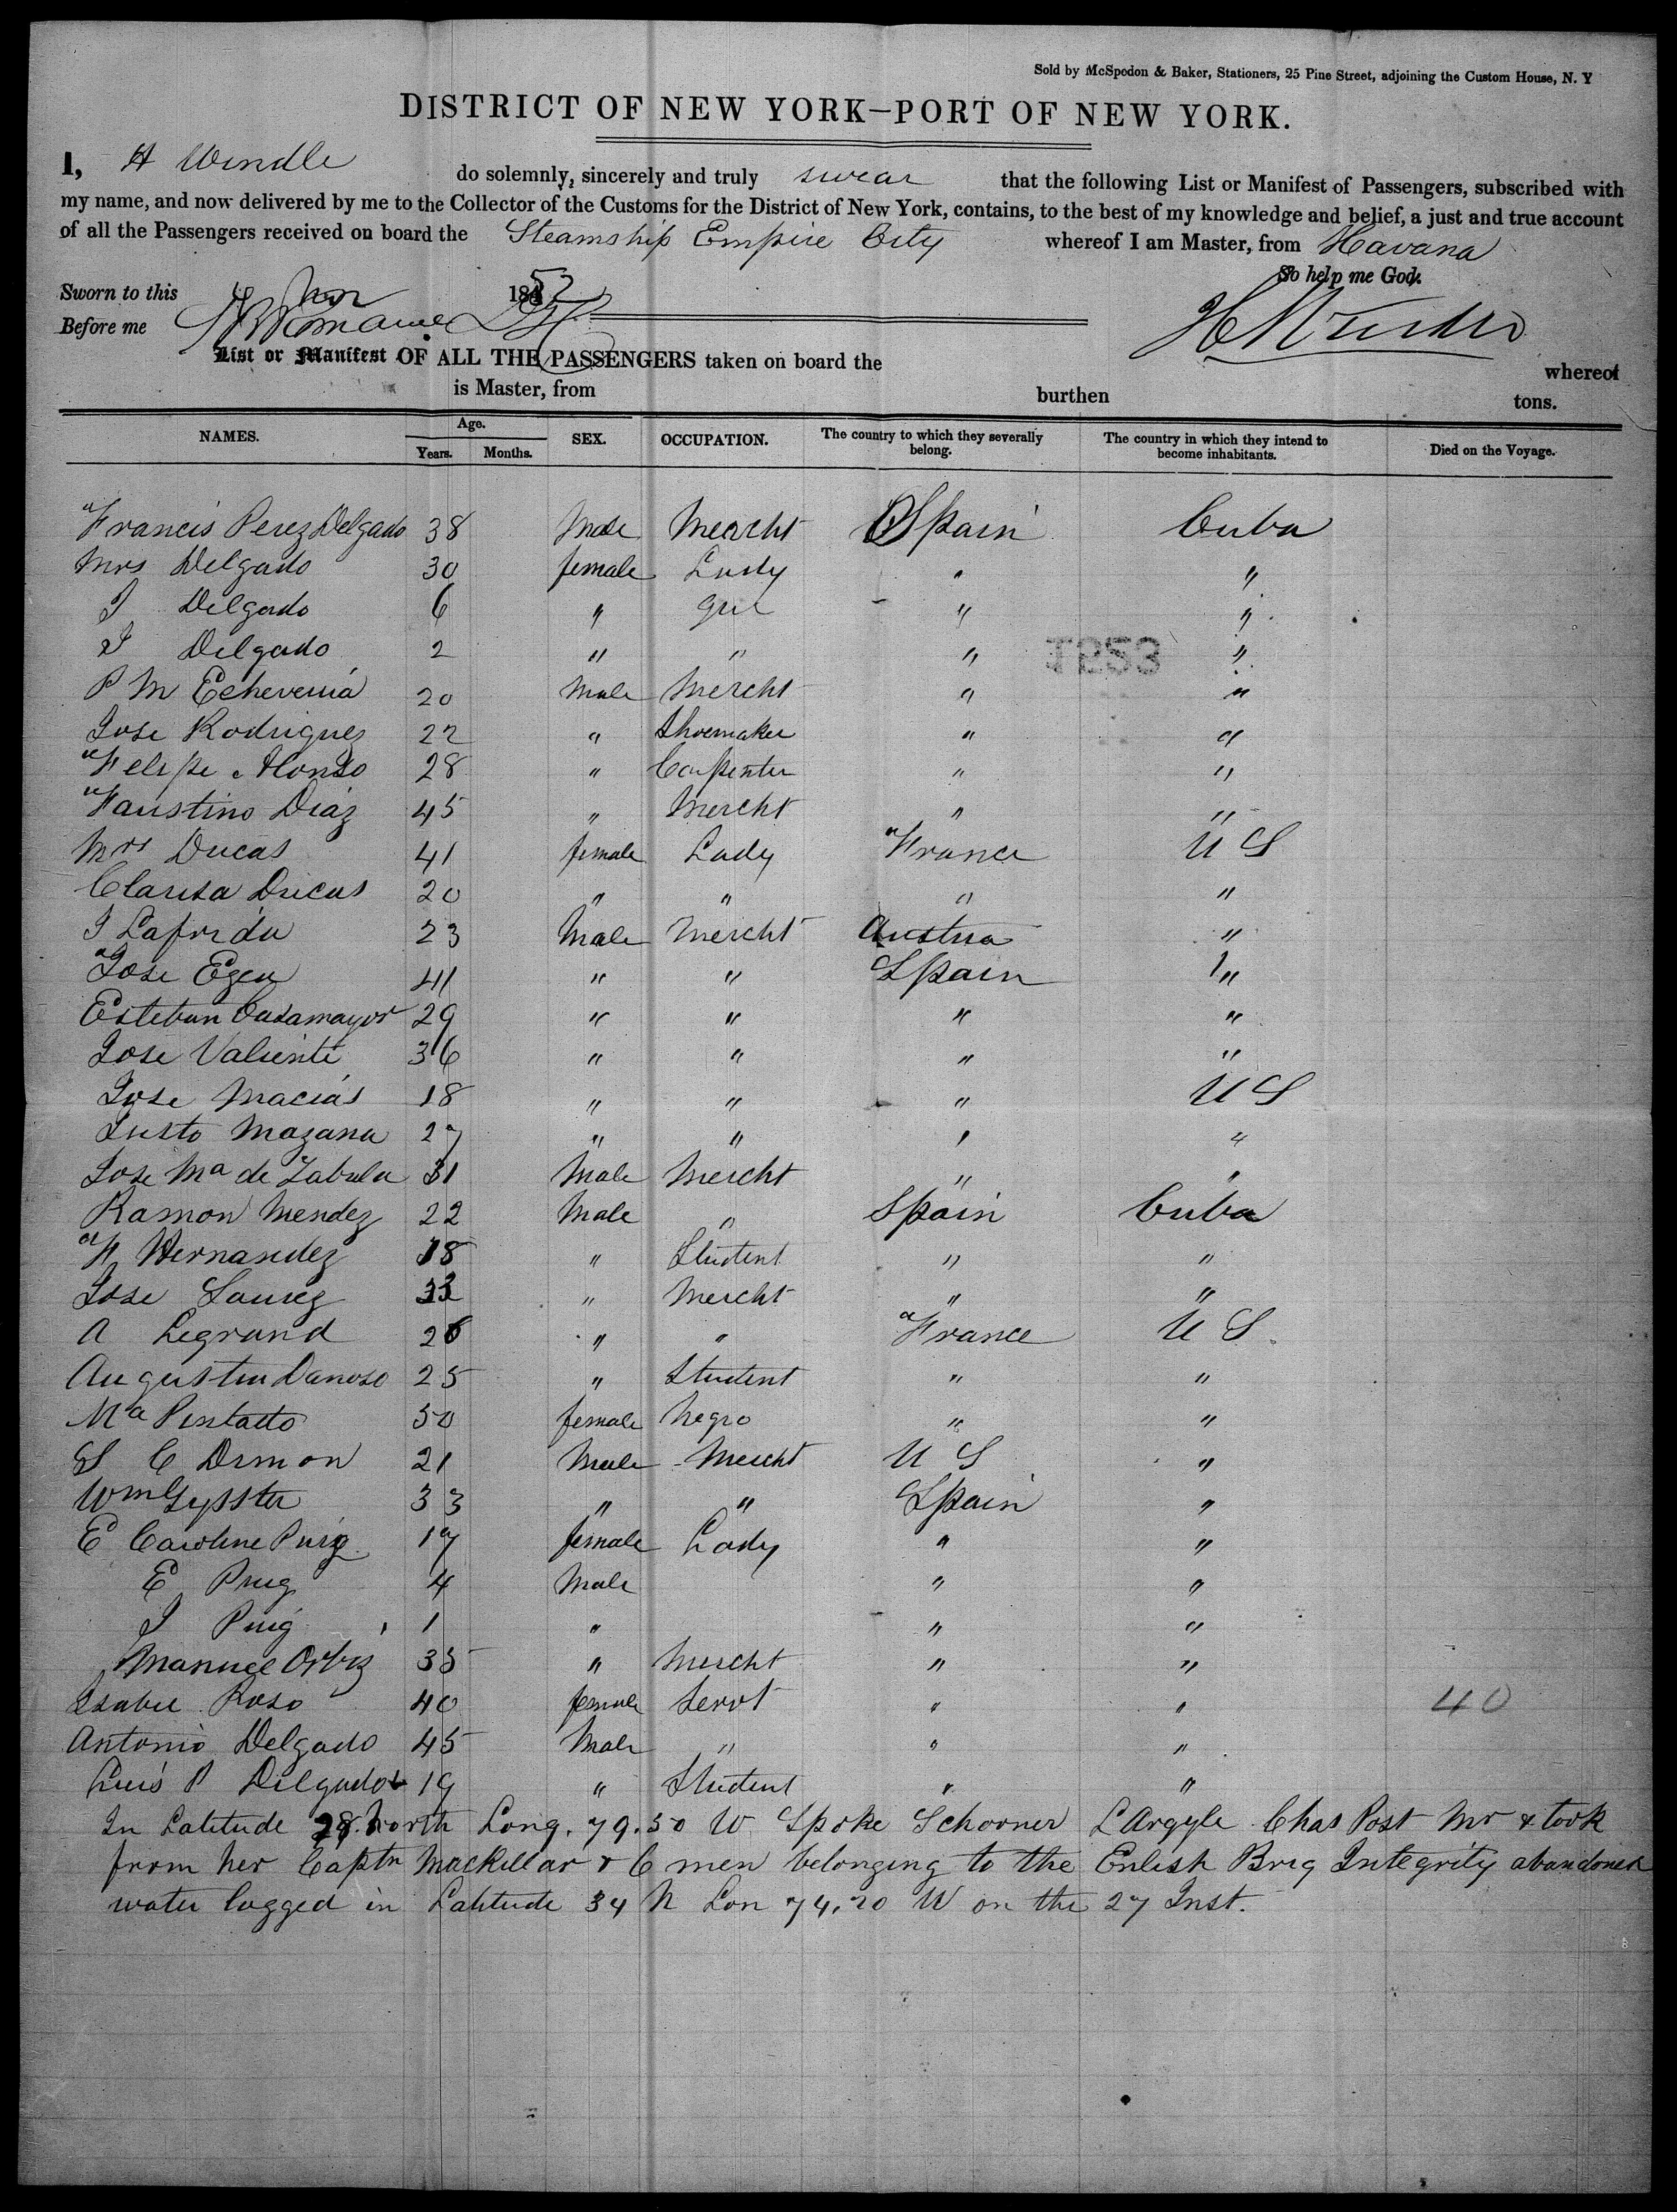 Sold by McSpedon & Baker, Stationers, 25 Pine Street, adjoining the Custom House, N. Y
DISTRICT OF NEW YORK–PORT OF NEW YORK.
I, H Windle do solemnly, sincerely and truly swear that the following List or Manifest of Passengers, subscribed with
my name, and now delivered by me to the Collector of the Customs for the District of New York, contains, to the best of my knowledge and belief, a just and true account
of all the Passengers received on board the Steamship Empire City whereof I am Master, from Havana
So help me God.
Sworn to this 4 Nov 1852
Before me
List or Manifest OF ALL THE PASSENGERS taken on board the whereof
is Master, from burthen tons.
NAMES. Age. Years. Months. SEX. OCCUPATION. The country to which they severally belong. The country in which they intend to become inhabitants. Died on the Voyage.
Francis Perez Delgado 38 Male Mercht Spain Cuba
Mrs Delgado 30 female Lady " "
J Delgado 6 " girl " "
S Delgado 2 " " " "
1253
P M Echeverria 20 Male Mercht " "
Jose Rodriguez 22 " Shoemaker " "
Felipe Alonso 28 " Carpenter " "
Faustino Diaz 45 " Mercht " "
Mrs Ducas 41 female Lady France U S
Clarisa Ducas 20 " " " "
J 23 Male Mercht Austria "
Jose Egea 41 " " Spain "
Esteban Casamayor 29 " " " "
Jose Valiente 36 " " " "
Jose Macias 18 " " " U S
Justo Mazana 27 " " " "
Jose Ma de Zabala 31 Male Mercht " "
Ramon Mendez 22 Male " Spain Cuba
F Hernandez 18 " Student " "
Jose Saurez 33 " Mercht " "
A Legrand 26 " " France U S
Augustin Danoso 25 " Student " "
Ma Pintado 50 female Negro " "
S C Dimon 21 Male Mercht U S "
Wm 33 " " Spain "
E Caroline Puig 17 female Lady " "
E Puig 4 Male " "
J Puig 1 " " "
Manuel Ortiz 35 " Mercht " "
Isabel Roso 40 female Servt " " 40
Antonio Delgado 45 Male " " "
Luis P Delgado 19 " Student " "
In Latitude 28 North Long. 79.50 W Spoke Schooner L Argyle Chas Post Mr & took
from her Captn Mackellar & 6 men belonging to the Enlish Brig Integrity abandoned
water logged in Latitude 34 N Lon 74.20 W on the 27 Inst.